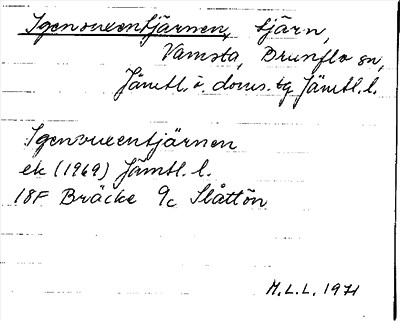 Igensveentjärnen, tjärn,
Vamsta, Brunflo sn,
Jämtl. ö. doms. tg Jämtl. l.
Igensveentjärnen
ek (1969) Jämtl. l.
18F Bräcke 9c Slåttön
M.L.L. 1971